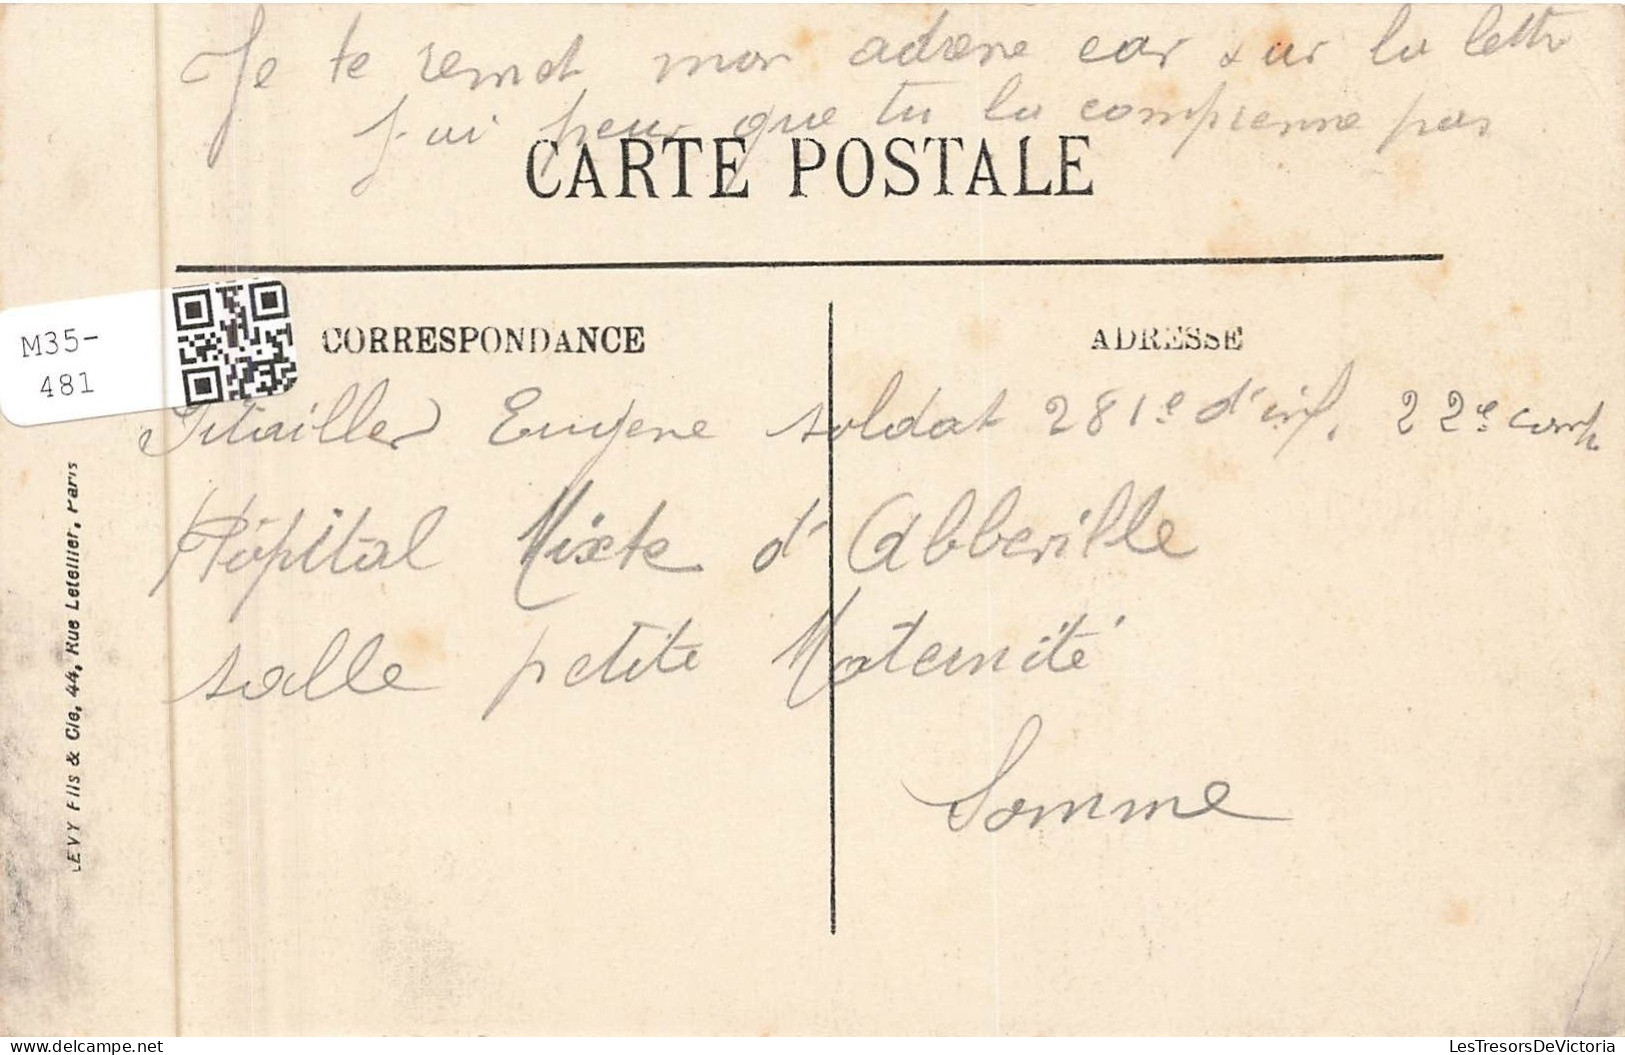 Je te remet mon adresse car sur la lettre
j'ai peur que tu la comprenne pas
CARTE POSTALE
M35-
481
CORRESPONDANCE
ADRESSE
Eugene soldat 281e d'inf. 22e comp
Hôpital Mixte d'Abbeville
salle petite Maternité
Somme
LEVY Fils & Cie, 44, Rue Letellier, Paris
LesTresorsDeVictoria
www.delcampe.net